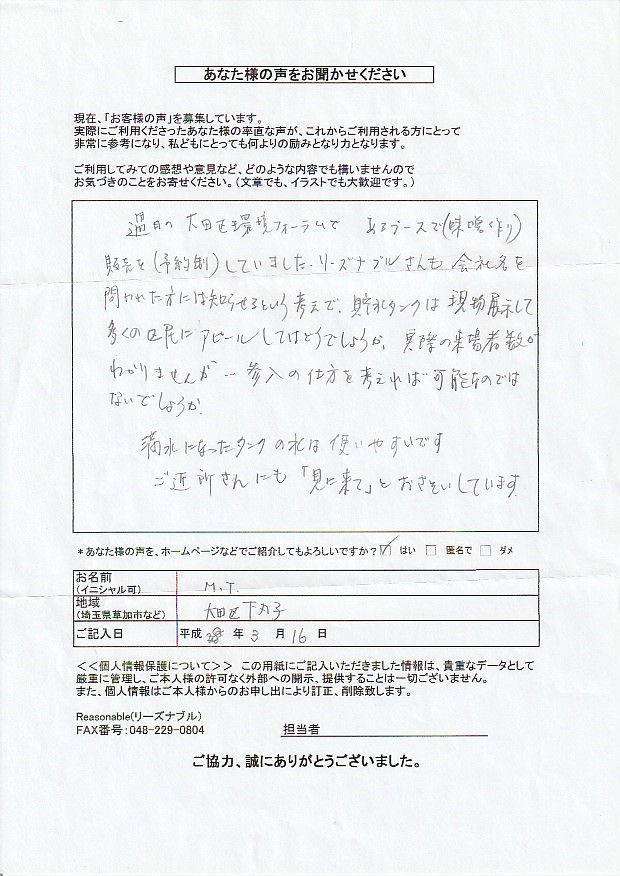 あなた様の声をお聞かせください
現在、「お客様の声」を募集しています。
実際にご利用くださったあなた様の率直な声が、これからご利用される方にとって
非常に参考になり、私どもにとっても何よりの励みとなり力となります。
ご利用してみての感想や意見など、どのような内容でも構いませんので
お気づきのことをお寄せください。(文章でも、イラストでも大歓迎です。)
過日の 大田区環境フォーラムで あるブースで(味噌作り)
販売を(予約制)していました。リーズナブルさんも 会社名を
問われた方には知らせるという考えで、貯水タンクは現物展示して
多くの区民にアピールしてはどうでしょうか、実際の来場者数が
わかりませんが… 参入の仕方を考えれば可能なのでは
ないでしょうか。
満水になったタンクの水は 使いやすいです
ご近所さんにも「見に来て」とおさそいしています。
*あなた様の声を、ホームページなどでご紹介してもよろしいですか? ☑ はい □ 匿名で □ ダメ
お名前
(イニシャル可) M.T.
地域
(埼玉県草加市など) 大田区下丸子
ご記入日 平成 年 3 月 16 日
<<個人情報保護について>> この用紙にご記入いただきました情報は、貴重なデータとして
厳重に管理し、ご本人様の許可なく外部への開示、提供することは一切ございません。
また、個人情報はご本人様からのお申し出により訂正、削除致します。
Reasonable(リーズナブル)
FAX番号:048-229-0804 担当者
ご協力、誠にありがとうございました。